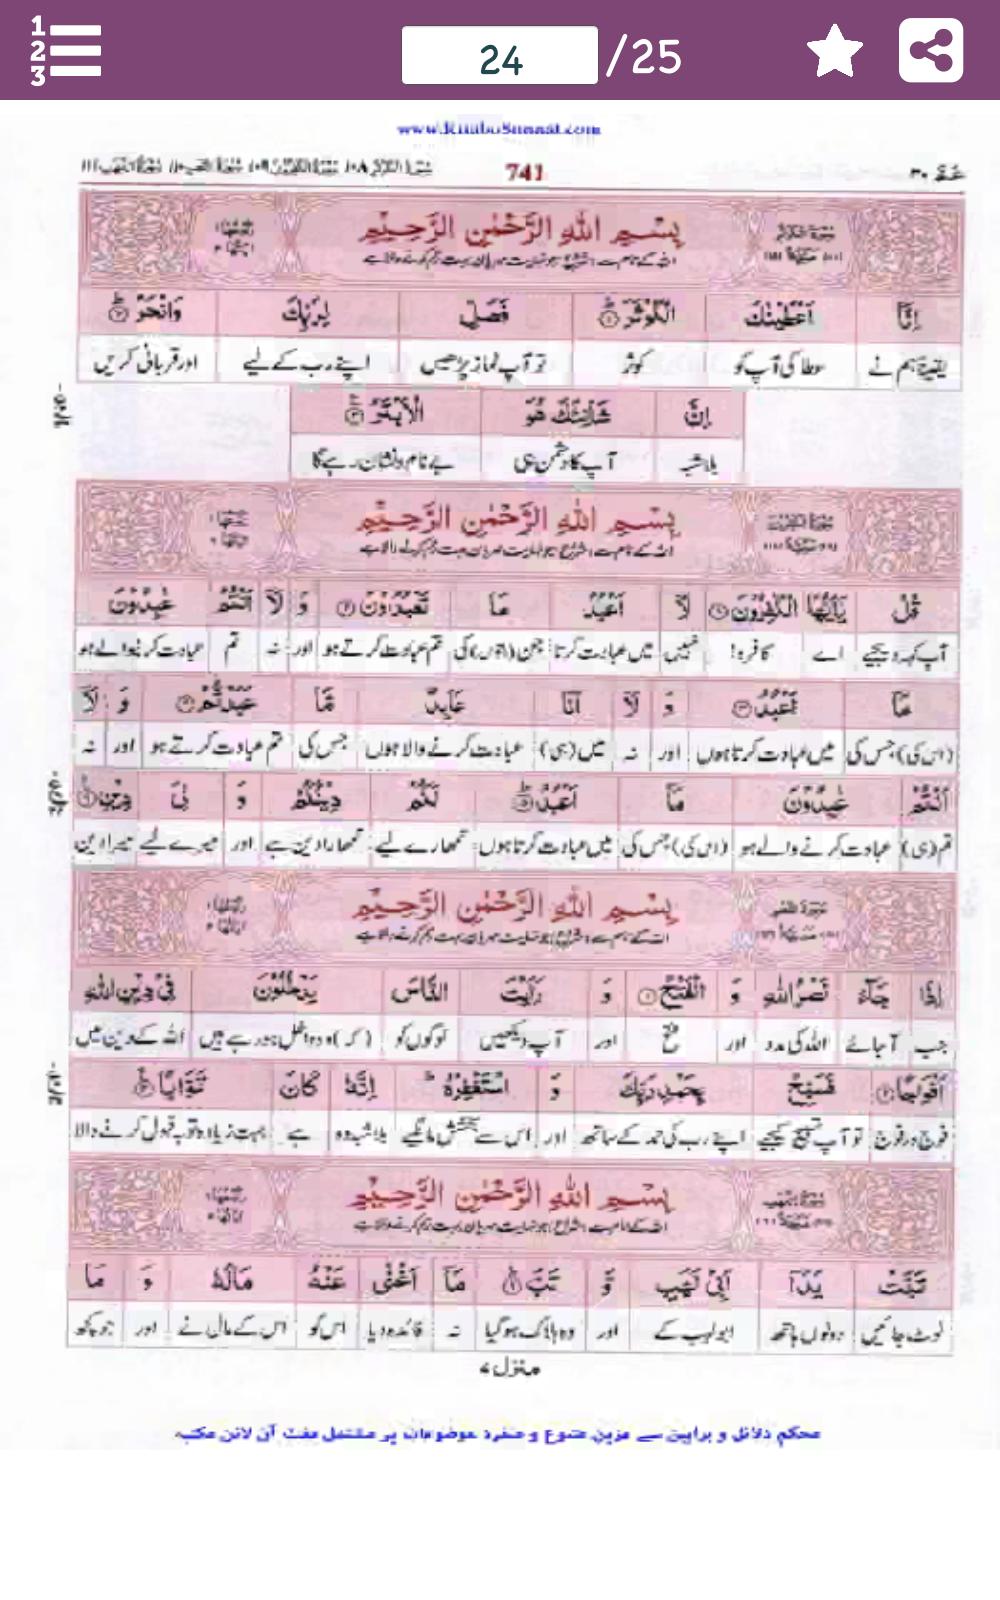 1
2
3
24 /25
www.KitaboSunnat.com
741
بِسْمِ اللهِ الرَّحْمٰنِ الرَّحِيْمِ
اللہ کے نام سے (شروع) جو نہایت مہربان بہت رحم کرنے والا ہے
اِنَّاۤ اَعْطَيْنٰكَ الْكَوْثَرَ ۱ فَصَلِّ لِرَبِّكَ وَانْحَرْ ۲
یقیناً ہم نے عطا کی آپ کو کوثر تو آپ نماز پڑھیں اپنے رب کے لیے اور قربانی کریں
اِنَّ شَانِئَكَ هُوَ الْاَبْتَرُ ۳
بلاشبہ آپ کا دشمن ہی بے نام و نشان رہے گا
بِسْمِ اللهِ الرَّحْمٰنِ الرَّحِيْمِ
اللہ کے نام سے (شروع) جو نہایت مہربان بہت رحم کرنے والا ہے
قُلْ يٰۤاَيُّهَا الْكٰفِرُوْنَ ۱ لَاۤ اَعْبُدُ مَا تَعْبُدُوْنَ ۲ وَ لَاۤ اَنْتُمْ عٰبِدُوْنَ
آپ کہہ دیجیے اے کافرو! نہیں میں عبادت کرتا جن (بتوں) کی تم عبادت کرتے ہو اور نہ تم عبادت کرنیوالے ہو
مَاۤ اَعْبُدُ ۳ وَ لَاۤ اَنَا عَابِدٌ مَّا عَبَدْتُّمْ ۴ وَ لَاۤ
(اس کی) جس کی میں عبادت کرتا ہوں اور نہ میں (ہی) عبادت کرنے والا ہوں جس کی تم عبادت کرتے ہو اور نہ
اَنْتُمْ عٰبِدُوْنَ مَاۤ اَعْبُدُ ۵ لَكُمْ دِيْنُكُمْ وَ لِيَ دِيْنِ ۶
تم (ہی) عبادت کرنے والے ہو (اس کی) جس کی میں عبادت کرتا ہوں تمھارے لیے تمھارا دین ہے اور میرے لیے میرا دین
بِسْمِ اللهِ الرَّحْمٰنِ الرَّحِيْمِ
اللہ کے نام سے (شروع) جو نہایت مہربان بہت رحم کرنے والا ہے
اِذَا جَآءَ نَصْرُ اللهِ وَ الْفَتْحُ ۱ وَ رَاَيْتَ النَّاسَ يَدْخُلُوْنَ فِيْ دِيْنِ اللهِ
جب آ جائے اللہ کی مدد اور فتح اور آپ دیکھیں لوگوں کو (کہ) وہ داخل ہو رہے ہیں اللہ کے دین میں
اَفْوَاجًا ۲ فَسَبِّحْ بِحَمْدِ رَبِّكَ وَ اسْتَغْفِرْهُ اِنَّهٗ كَانَ تَوَّابًا ۳
فوج در فوج تو آپ تسبیح کیجیے اپنے رب کی حمد کے ساتھ اور اس سے بخشش مانگیے بلاشبہ وہ ہے بہت زیادہ توبہ قبول کرنے والا
بِسْمِ اللهِ الرَّحْمٰنِ الرَّحِيْمِ
اللہ کے نام سے (شروع) جو نہایت مہربان بہت رحم کرنے والا ہے
تَبَّتْ يَدَاۤ اَبِيْ لَهَبٍ وَّ تَبَّ ۱ مَاۤ اَغْنٰى عَنْهُ مَالُهٗ وَ مَا
ٹوٹ جائیں دونوں ہاتھ ابولہب کے اور وہ ہلاک ہو گیا نہ فائدہ دیا اس کو اس کے مال نے اور جو کچھ
منزل ۷
محکم دلائل و براہین سے مزین متنوع و منفرد موضوعات پر مشتمل مفت آن لائن مکتبہ